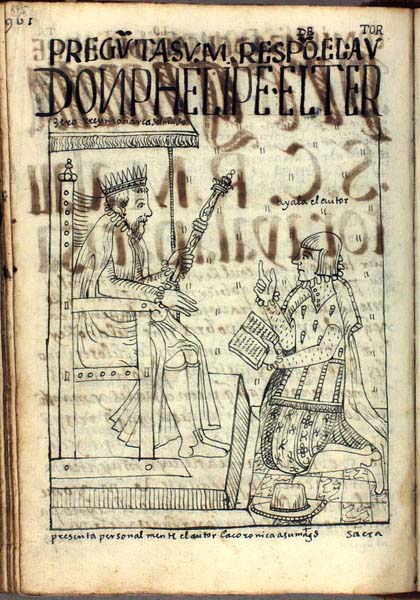 961
PREGVTASVM, RESPŌDE EL AVTOR
DON PHELIPE EL TER
zero rey monarca del mundo
ayala el autor
presenta personalmente el autor la coronica a su magd
sacra